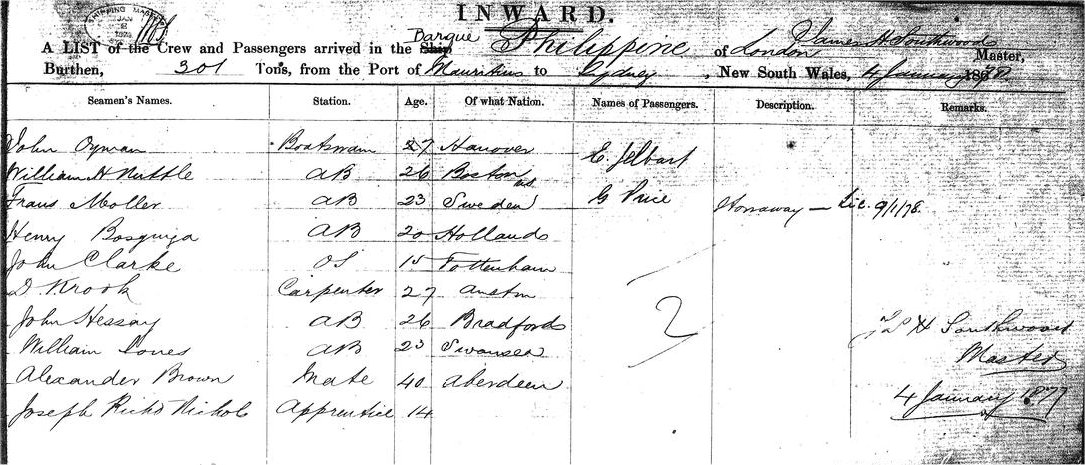 SHIPPING MASTER
JAN
INWARD.
Barque
A LIST of the Crew and Passengers arrived in the Ship Philippine of London James H. Southwood Master,
Burthen, 301 Tons, from the Port of Mauritius to Sydney, New South Wales, 4 January 187
Seamen's Names. Station. Age. Of what Nation. Names of Passengers. Description. Remarks.
John Oyman Boatswain 27 Hanover E. Jelbart
William H Nuttle AB 26 Boston
Frans Moller AB 23 Sweden G Price Stowaway — 9/1/78.
Henry AB 20 Holland
John Clarke OS 15 Tottenham
D. Krook Carpenter 27
John Hessay AB 26 Bradford
2
H Southwood
William Jones AB 23 Swansea
Master
Alexander Brown Mate 40 Aberdeen
4 January 1877
Joseph Richd Nichols Apprentice 14